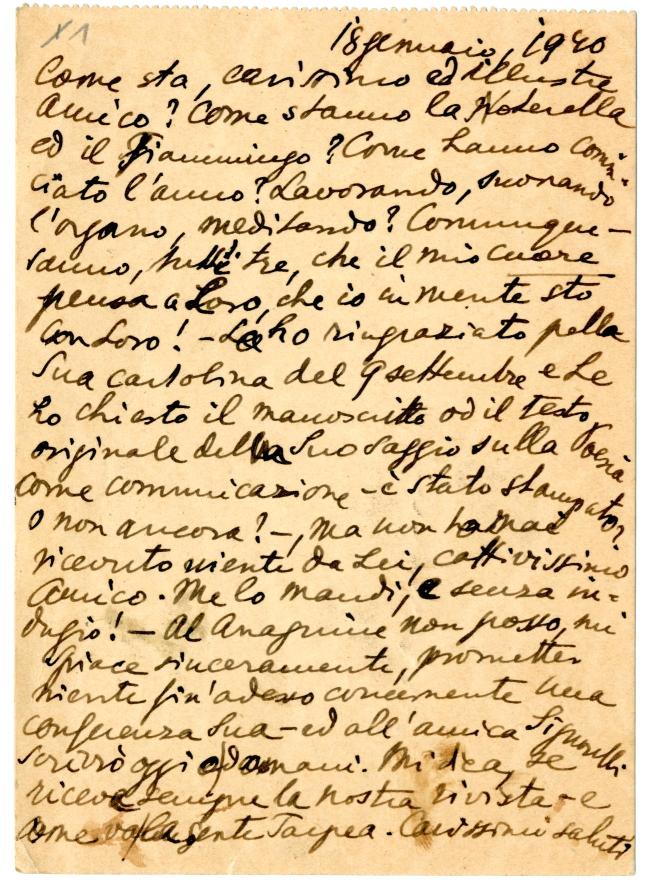 18 gennaio, 1940
Come sta, carissimo ed illustre
Amico? Come stanno la
ed il Fiammingo? Come hanno comin-
ciato l'anno? Lavorando, suonando
l'organo, meditando? Comunque –
sanno, tutti tre, che il mio cuore
pensa a Loro, che io in mente sto
con Loro! – La ho ringraziato pella
Sua cartolina del 9 settembre e Le
ho chiesto il manoscritto od il testo
originale della Suo saggio sulla Poesia
come comunicazione – è stato stampato
o non ancora? –, ma non ho mai
ricevuto niente da Lei, cattivissimo
Amico. Me lo mandi, e senza in=
dugio! – Al Anagnine non posso, mi
spiace sinceramente, prometter
niente fin'adesso concernente una
conferenza Sua – ed all'amica Signorelli
scrivrò oggi o domani. Mi dica, se
riceve sempre la nostra rivista – e
come va la gente Tarpea. Carissimi saluti